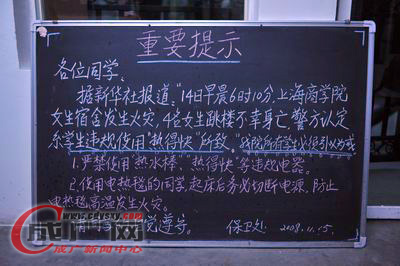 重要提示
各位同学:
据新华社报道:"14日早晨6时10分,上海商学院
女生宿舍发生火灾,4名女生跳楼不幸身亡,警方认定
系学生违规使用"热得快"所致。"我院所有学生必须引以为戒
1.严禁使用"热水棒"、"热得快"等违规电器。
2.使用电热毯的同学,起床后务必切断电源,防止
电热毯高温发生火灾。
遵守。 保卫处 2008.11.15.
www.cdysxy.com
成广新闻中心